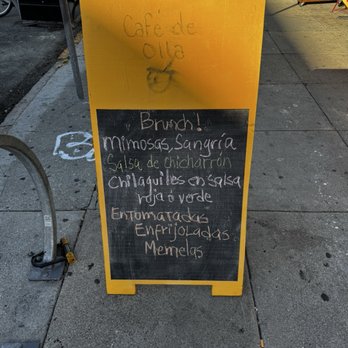 Café de
Olla
Brunch!
Mimosas, Sangría
Salsa de chicharrón
Chilaquiles en salsa
roja ó verde
Entomatadas
Enfrijoladas
Memelas